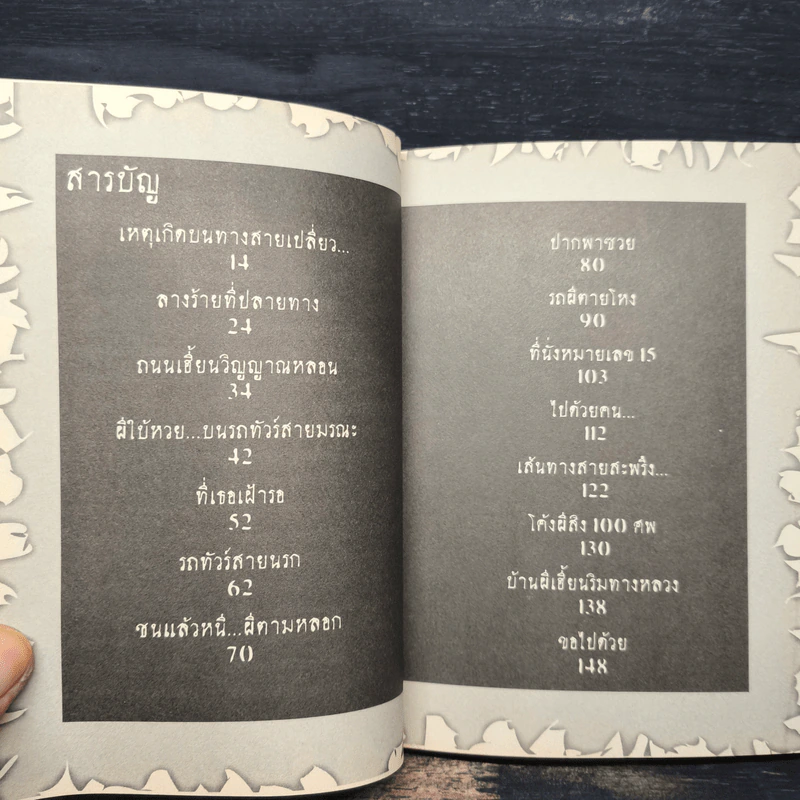 สารบัญ
เหตุเกิดบนทางสายเปลี่ยว...
14
ลางร้ายที่ปลายทาง
24
ถนนเฮี้ยนวิญญาณหลอน
34
ผีใบ้หวย...บนรถทัวร์สายมรณะ
42
ที่เธอเฝ้ารอ
52
รถทัวร์สายนรก
62
ชนแล้วหนี...ผีตามหลอก
70
ปากพาซวย
80
รถผีตายโหง
90
ที่นั่งหมายเลข 15
103
ไปด้วยคน...
112
เส้นทางสายสะพรึง...
122
โค้งผีสิง 100 ศพ
130
บ้านผีเฮี้ยนริมทางหลวง
138
ขอไปด้วย
148